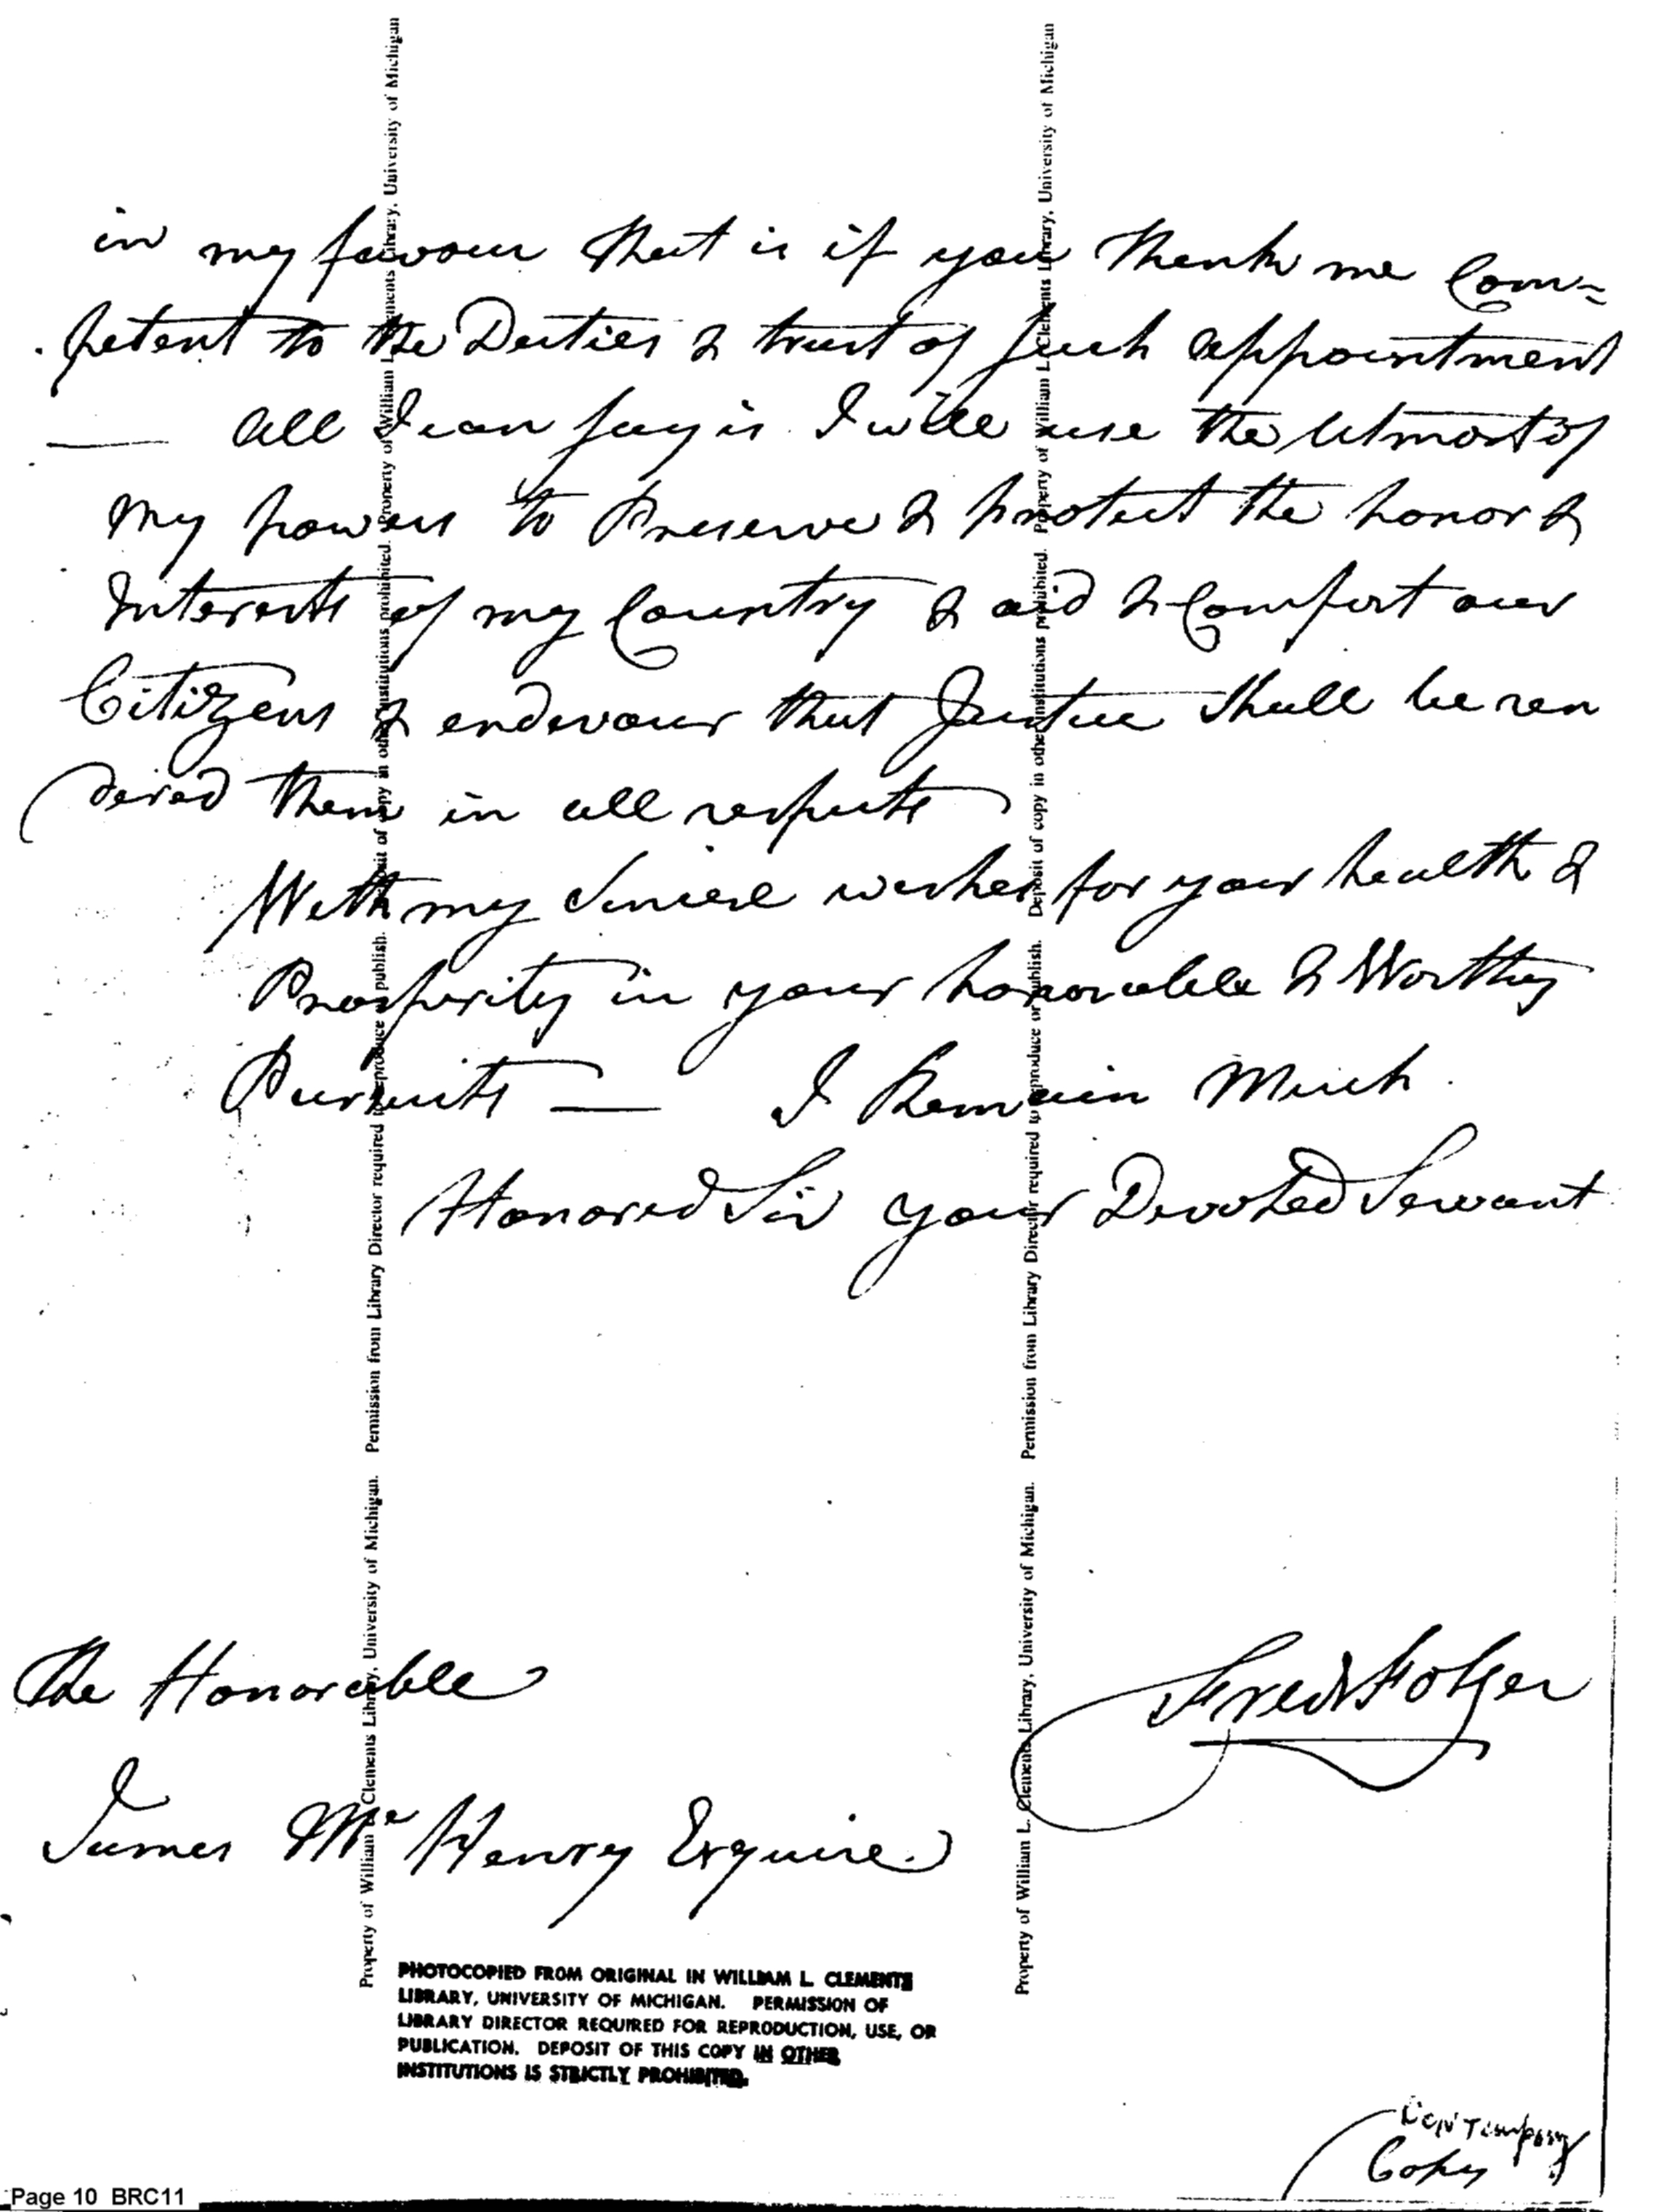 in my favour that is if you think me Com=
petent to the Duties & trust of such appointment
— all I can say is I will use the Utmost of
my powers to Preserve & protect the honor &
Interests of my Country & aid & Comfort our
Citizens & endevour that Justice shall be ren
dered them in all respects
With my Sincere wishes for your health &
Prosperity in your honorable & Worthy
Pursuits — I Remain Much
Honored Sir your Devoted Servant
Fred Folger
The Honorable
James Mc Henry Esquire
PHOTOCOPIED FROM ORIGINAL IN WILLIAM L. CLEMENTS
LIBRARY, UNIVERSITY OF MICHIGAN. PERMISSION OF
LIBRARY DIRECTOR REQUIRED FOR REPRODUCTION, USE, OR
PUBLICATION. DEPOSIT OF THIS COPY IN OTHER
INSTITUTIONS IS STRICTLY PROHIBITED.
Property of William L. Clements Library, University of Michigan. Permission from Library Director required to reproduce or publish. Deposit of copy in other institutions prohibited. Property of William L. Clements Library, University of Michigan
Property of William L. Clements Library, University of Michigan. Permission from Library Director required to reproduce or publish. Deposit of copy in other institutions prohibited. Property of William L. Clements Library, University of Michigan
Contempory
Copy
Page 10 BRC11